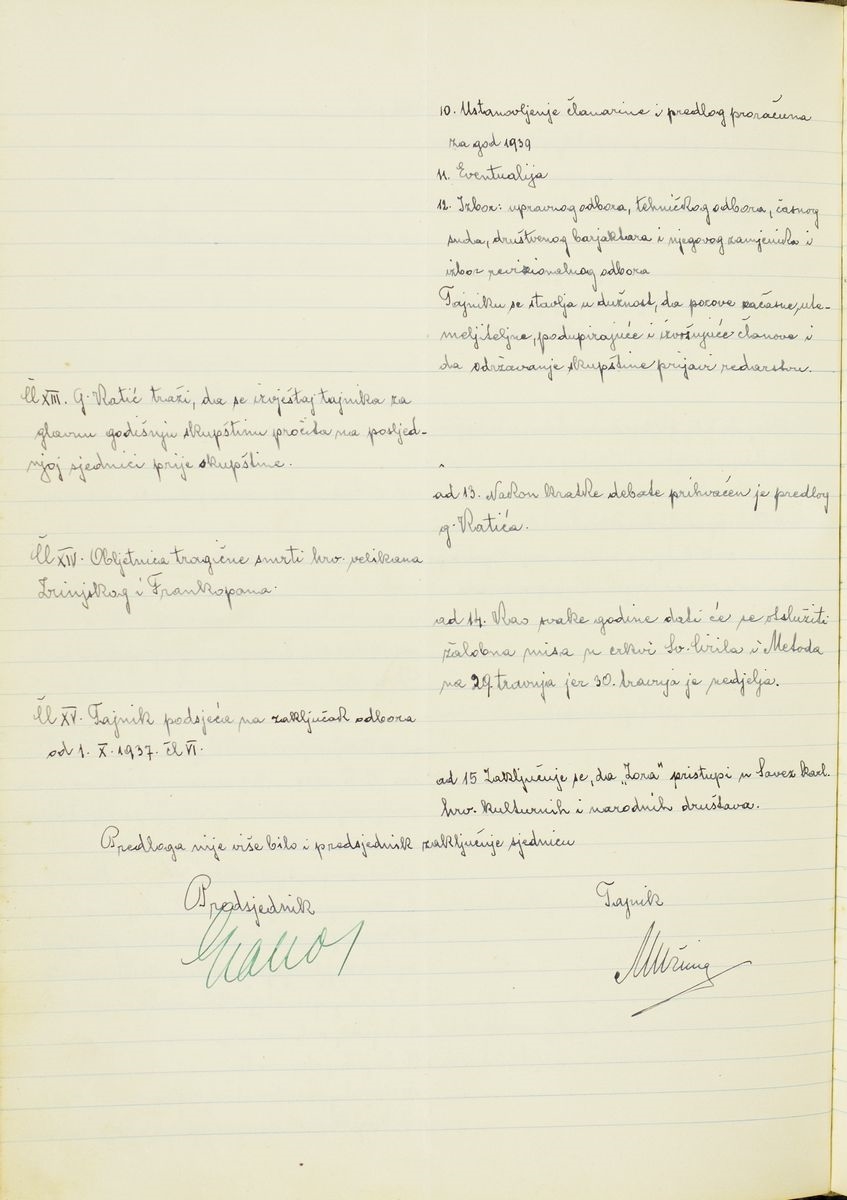 10. Ustanovljenje članarine i predlog proračuna
za god 1939
11. Eventualija
12. Izbor: upravnog odbora, tehničkog odbora, časnog
suda, društvenog barjaktara i njegovog zamjenika i
izbor revizionalnog odbora
Tajniku se stavlja u dužnost, da pozove začasne, ute-
meljiteljne, podupirajuće i izvršujuće članove i
da održavanje skupštine prijavi redarstvu.
Čl XIII. G. Katić traži, da se izvještaj tajnika za
glavnu godišnju skupštinu pročita na posljed-
njoj sjednici prije skupštine.
ad 13. Nakon kratke debate prihvaćen je predlog
g. Katića.
Čl XIV. Obljetnica tragične smrti hrv. velikana
Zrinjskog i Frankopana.
ad 14. Kao svake godine dati će se otslužiti
žalobna misa u crkvi Sv. Ćirila i Metoda
na 29. travnja jer 30. travnja je nedjelja.
Čl XV. Tajnik podsjeća na zaključak odbora
od 1. X. 1937. čl VI.
ad 15 Zaključuje se, da „Zora" pristupi u Savez karl.
hrv. kulturnih i narodnih društava.
Predloga nije više bilo i predsjednik zaključuje sjednicu
Predsjednik
Tajnik